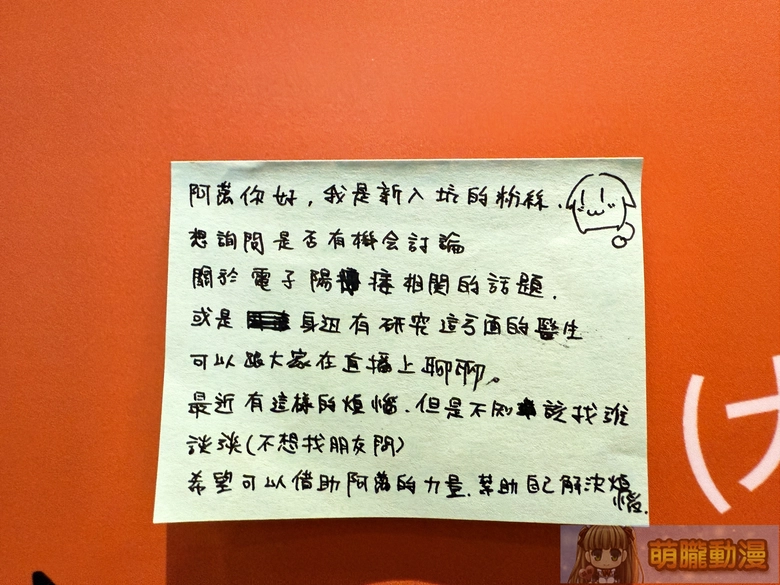 阿萬你好，我是新入坑的粉絲.
想詢問是否有機会討論
關於電子陽痿相関的話題.
或是身边有研究這方面的醫生
可以跟大家在直播上聊聊。
最近有這樣的煩惱.但是不知該找誰
談談(不想找朋友問)
希望可以借助阿萬的力量.幫助自己解決煩
惱.
(
萌朧動漫